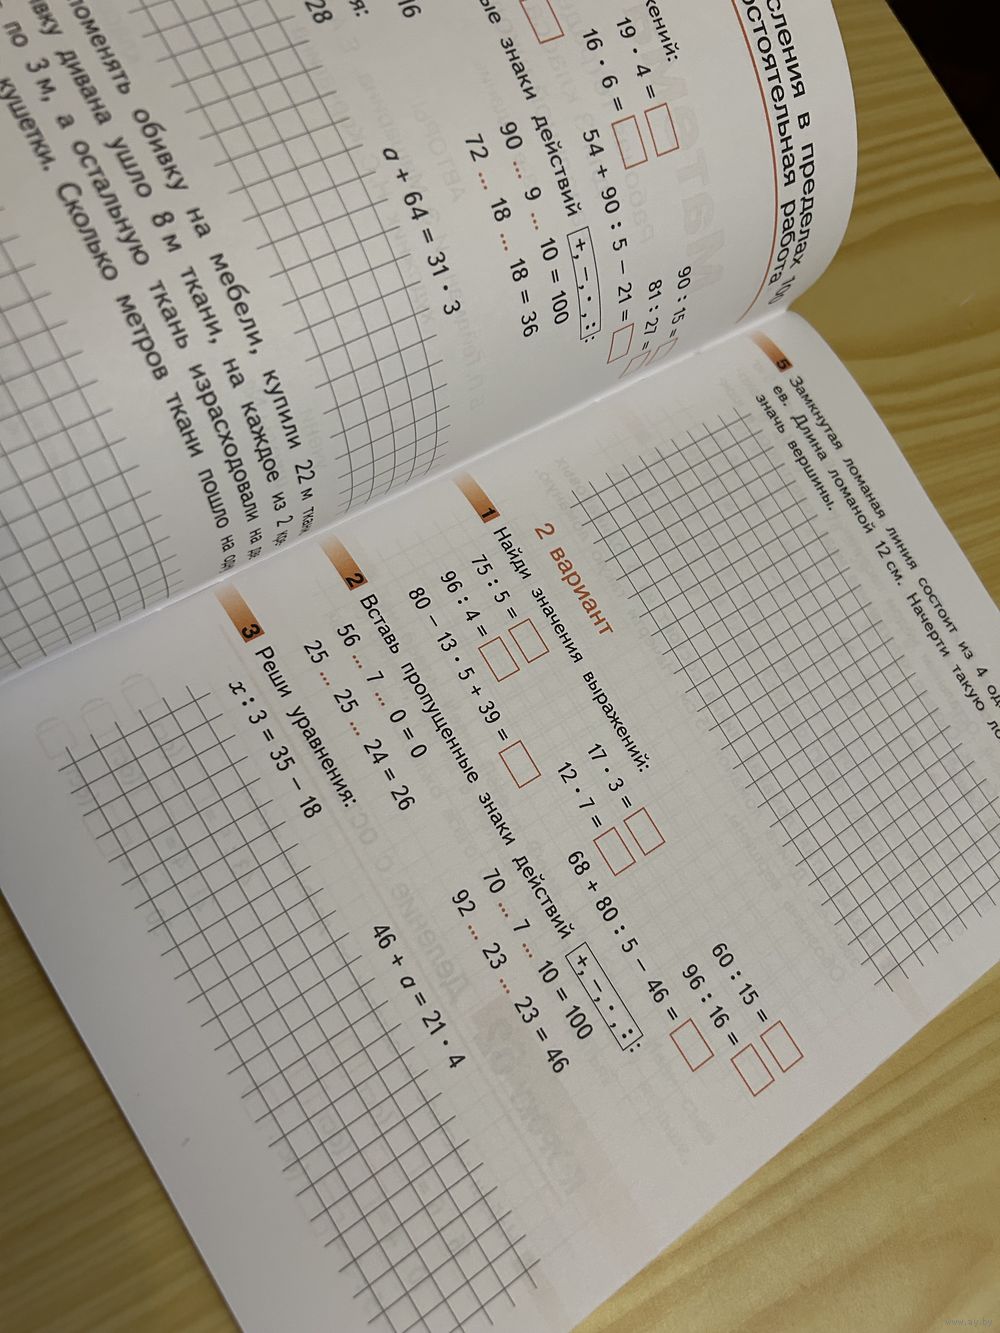 сления в пределах 100
остоятельная работа
жений:
19 · 4 =
90 : 15 =
16 · 6 =
81 : 27 =
54 + 90 : 5 – 21 =
ые знаки действий +, –, ·, : :
90 ... 9 ... 10 = 100
16
72 ... 18 ... 18 = 36
я:
28
a + 64 = 31 · 3
поменять обивку на мебели, купили 22 м
ивку дивана ушло 8 м ткани, на каждое из 2
по 3 м, а остальную ткань израсходовали на
кушетки. Сколько метров ткани пошло на
5 Замкнутая ломаная линия состоит из 4
ев. Длина ломаной 12 см. Начерти такую
значь вершины.
2 вариант
1 Найди значения выражений:
75 : 5 =
17 · 3 =
60 : 15 =
96 : 4 =
12 · 7 =
96 : 16 =
80 – 13 · 5 + 39 =
68 + 80 : 5 – 46 =
2 Вставь пропущенные знаки действий +, –, ·, : :
56 ... 7 ... 0 = 0
70 ... 7 ... 10 = 100
25 ... 25 ... 24 = 26
92 ... 23 ... 23 = 46
3 Реши уравнения:
x : 3 = 35 – 18
46 + a = 21 · 4
www.ay.by